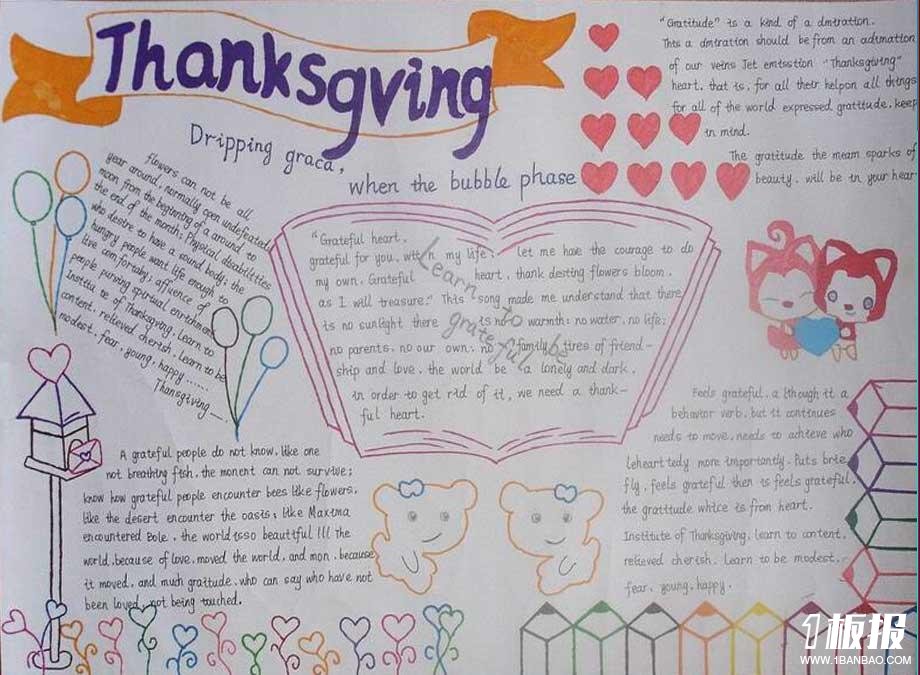 Thanksgving
Dripping graca,
when the bubble phase
"Gratitude" is a kind of a dmtration.
This a dmtration should be from an adtmation
of our veins Jet emtsstion "Thanksgiving"
heart, that is, for all their helpon all things
for all of the world expressed gratitude, keep
in mind.
The gratitude the meam sparks of
beauty, will be in your hear
flowers can not be all
year around, normally open undefeated;
moon from the beginning of a around to
the end of the month; Physical disabilities
who destre to have a sound body; the
hungry people want life enough to
live comfortably, affluence of
people pursving spiritual enrichment
Institute of Thanksgiving, learn to
content, relieved cherish, learn to be
modest, fear, young, happy......
Thansgiving—
"Grateful heart,
grateful for you, with in my life; let me have the courage to do
my own, Grateful heart, thank desting flowers bloom,
as I will treasure." This song made me understand that there
is no sunlight there is no warmth; no water, no life;
no parents, no our own; no family be tires of friend-
ship and love, the world be a lonely and dark,
in order to get rid of it, we need a thank-
ful heart.
Learn to be
grateful
A grateful people do not know, like one
not breathing fish, the monent can not survive;
know how grateful people encounter bees like flowers,
like the desert encounter the oasis; like Maxima
encountered Bole, the world isso beautiful !!! The
world, because of love, moved the world, and mon, because
it moved, and much graitude, who can say who have not
been loved, not being touched.
Feels grateful, a lthough it a
behavior verb, but it continues
needs to move, needs to achieve who
leheart tedy more importantly. Puts brie
fly, feels grateful then is feels grateful,
the gratitude whtce is from heart.
Institute of Thanksgiving, learn to content,
relieved cherish, Learn to be modest,
fear, young, happy.
1板报
WWW.1BANBAO.COM